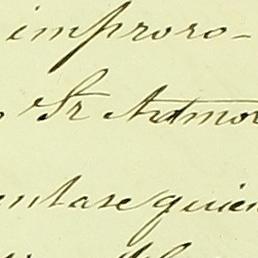 improro-
Sr Admor
ntase quien